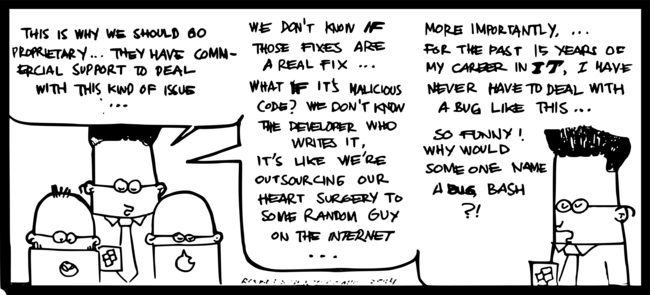 THIS IS WHY WE SHOULD GO
PROPRIETARY... THEY HAVE COMM-
ERCIAL SUPPORT TO DEAL
WITH THIS KIND OF ISSUE
...
WE DON'T KNOW IF
THOSE FIXES ARE
A REAL FIX ...
WHAT IF IT'S MALICIOUS
CODE? WE DON'T KNOW
THE DEVELOPER WHO
WRITES IT,
IT'S LIKE WE'RE
OUTSOURCING OUR
HEART SURGERY TO
SOME RANDOM GUY
ON THE INTERNET
...
MORE IMPORTANTLY, ...
FOR THE PAST 15 YEARS OF
MY CAREER IN IT, I HAVE
NEVER HAVE TO DEAL WITH
A BUG LIKE THIS ...
SO FUNNY!
WHY WOULD
SOME ONE NAME
A BUG BASH
?!